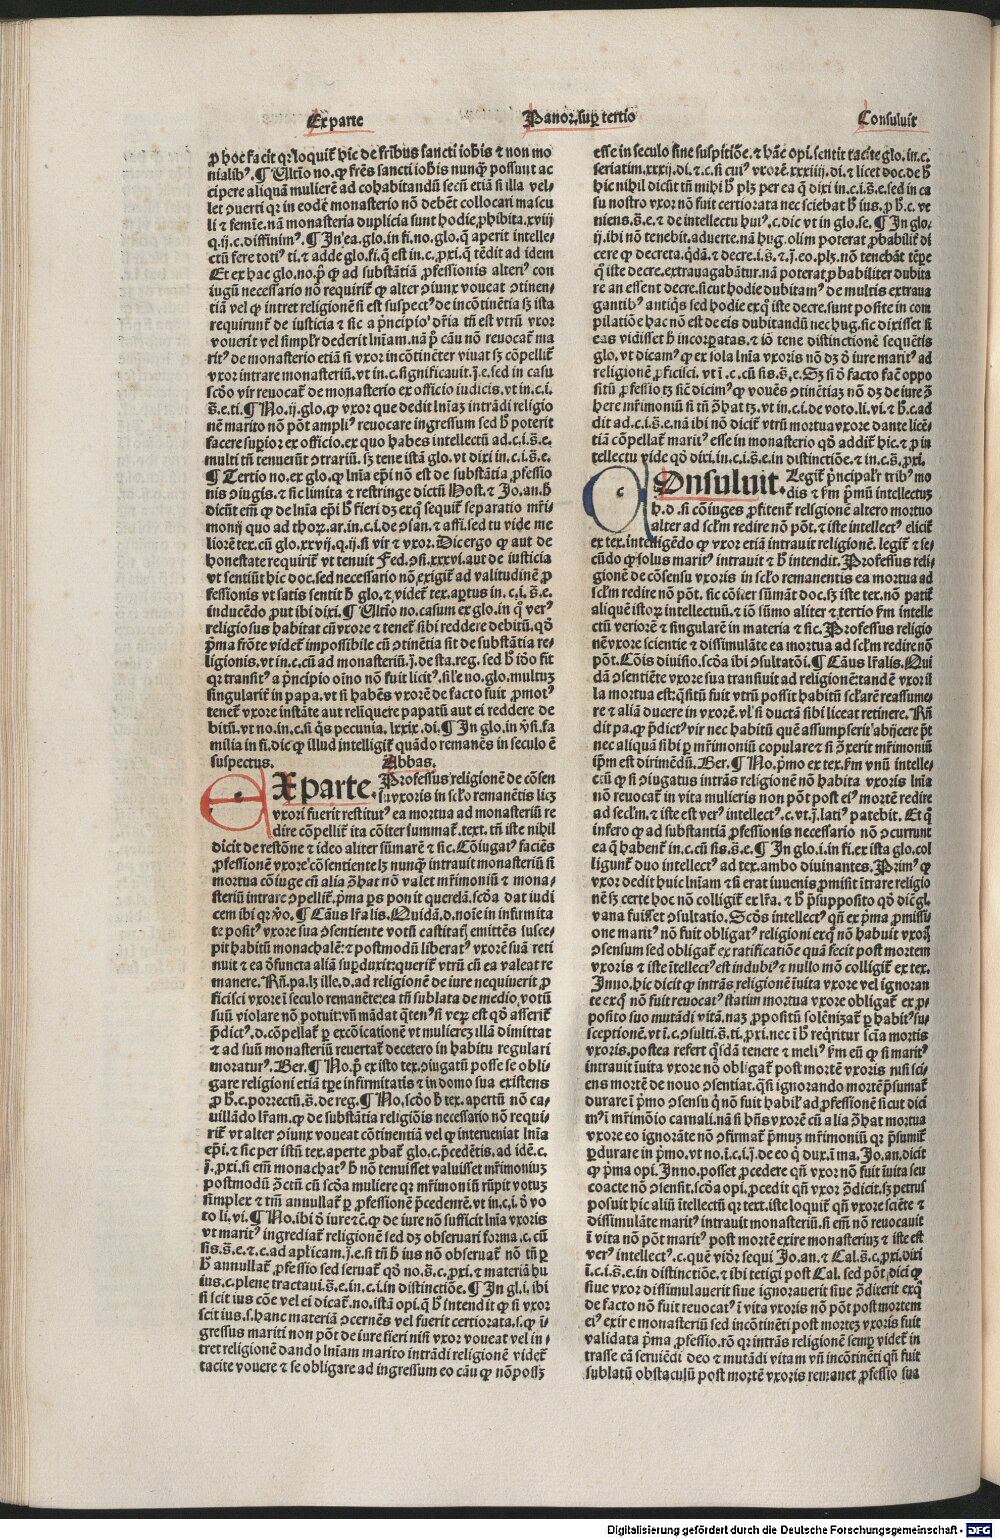 Ex parte
Panor. sup tertio
Consuluit
p hoc facit qr loquit hic de fribus sancti iohis & non mo
nialib9. ¶ Ultio no. q fres sancti iohis nunq possunt ac
cipere aliquā mulierē ad cohabitandū secū etiā si illa vel-
let ɔuerti qr in eodē monasterio nō debēt collocari mascu
li & femine. nā monasteria duplicia sunt hodie phibita. xviij
q. ij. c. diffinim9. ¶ In ea. glo. in fi. no. glo. q aperit intelle-
ctū fere toti9 ti. & adde glo. fi. q est in. c. pxi. q tēdit ad idem
Et ex hac glo. no. p q ad substātiā pfessionis alteri9 con
iugū necessario nō requirit q alter ɔiunx voueat ɔtinen-
tiā vel q intret religionē si est suspect9 de incōtinētia sz ista
requirunt de iusticia & sic a pncipio dria tn est vtrū vxor
vouerit vel simplr dederit lniam. nā p cāu nō reuocat ma
rit9 de monasterio etiā si vxor incōtinēter viuat sz cōpellit
vxor intrare monasteriū. vt in. c. significauit. j. e. sed in casu
scdo vir reuocat de monasterio ex officio iudicis. vt in. c. i.
s. e. ti. ¶ No. ij. glo. q vxor que dedit lniaz intrādi religio
nē marito nō pōt ampli9 reuocare ingressum sed h poterit
facere supior ex officio. ex quo habes intellectū ad. c. i. s. e.
multi tn tenuerūt ɔtrariū. sz tene istā glo. vt dixi in. c. i. s. e.
¶ Tertio no. ex glo. q lnia epi nō est de substātia pfessio
nis ɔiugis. & sic limita & restringe dictū Host. & Jo. an. h
dicūt em q de lnia epi h fieri dz exq sequit separatio mri-
monij quo ad thoz. ar. in. c. i. de ɔsan. & affi. sed tu vide me
liorē tex. cū glo. xxvij. q. ij. si vir & vxor. Dic ergo q aut de
honestate requirit vt tenuit Fed. ɔsi. xxxvi. aut de iusticia
vt sentiūt hic doc. sed necessario nō exigit ad valitudinē p
fessionis vt satis sentit h glo. & videt tex. aptus in. c. i. s. e.
inducēdo put ibi dixi. ¶ Ultio no. casum ex glo. in q ver9
religiosus habitat cū vxore & tenet sibi reddere debitū. qd
pma frōte videt impossibile cū ɔtinētia sit de substātia re-
ligionis. vt in. c. cū ad monasteriū. j. de sta. reg. sed h ido fit
qr transit9 a pncipio oino nō fuit licit9. sile no. glo. multuz
singularit in papa. vt si habēs vxorē de facto fuit pmot9
tenet vxore instāte aut reliquere papatū aut ei reddere de
bitū. vt no. in. c. si qs pecunia. lxxix. di. ¶ In glo. in v. si. fa
milia in fi. dic q illud intelligit quādo remanēs in seculo ē
suspectus. Abbas.
EX parte. Professus religionē de cōsen
su vxoris in sclo remanētis licz
vxori fuerit restitut9 ea mortua ad monasteriū re
dire cōpellit ita cōiter summat. text. tn iste nihil
dicit de restōne & ideo aliter sūmarē & sic. Cōiugat9 faciēs
pfessionē vxore cōsentiente lz nunq intrauit monasteriū si
mortua cōiuge cū alia ɔhat nō valet mrimoniū & mona-
steriū intrare ɔpellit. pma ps ponit querelā. scda dat iudi
cem ibi qr vo. ¶ Cāus lralis. Quidā. d. noīe in infirmita
te posit9 vxore sua ɔsentiente votū castitati emittēs susce-
pit habitū monachalē: & postmodū liberat9 vxorē suā reti
nuit & ea defuncta aliā supduxit: querit vtrū cū ea valeat re
manere. Rn. pa. lz ille. d. ad religionē de iure nequiuerit p
ficisci vxore i seculo remanēte: ea tn sublata de medio, votū
suū violare nō potuit: vn mādat qten9 si vex est qd asserit
pdict9. d. cōpellat p excōicationē vt mulierez illā dimittat
& ad suū monasteriū reuertat decetero in habitu regulari
moratur9. Ber. ¶ No. p ex isto tex. ɔiugatū posse se obli-
gare religioni etiā tpe infirmitatis & in domo sua existens
p h. c. porrectū. s. de reg. ¶ No. scdo h tex. apertū nō ca-
uillādo lram. q de substātia religiōis necessario nō requi-
rit vt alter ɔiunx voueat cōtinentiā vel q interueniat lnia
epi. & sic per istū tex. aperte pbat glo. c. pcedētis. ad idē. c.
j. pxi. si em monachat9 h nō tenuisset valuisset mrimoniuz
postmodū ɔctū cū scda muliere qr mrimoniū rūpit votuz
simplex & tm annullat p pfessionē pcedentē. vt in. c. i. de vo
to li. vi. ¶ No. ibi de iure & c. q de iure nō sufficit lnia vxoris
vt marit9 ingrediat religionē sed dz obseruari forma. c. cū
sis. s. e. & c. ad aplicam. j. e. si tn h ius nō obseruat nō tn p
h annullat pfessio sed seruat qd no. s. c. pxi. & materiā hu
ius. c. plene tractaui. s. e. in. c. i. in distinctiōe. ¶ In gl. i. ibi
si scit ius cōe vel ei dicat. no. istā opi. q h intendit q si vxor
scit ius. s. hanc materiā ɔcernēs vel fuerit certiorata. s. q i-
gressus mariti non pōt de iure fieri nisi vxor voueat vel in-
tret religionē dando lniam marito intrādi religionē videt
tacite vouere & se obligare ad ingressum eo cāu q nō possz
esse in seculo sine suspitiōe. & hāc opi. sentit tacite glo. in. c.
seriatim. xxxij. di. & c. si cui9 vxorē. xxxiiij. di. & licet doc. de h
hic nihil dicūt tn mihi h plz per ea q dixi in. c. i. s. e. sed in ca
su nostro vxor nō fuit certiorata nec sciebat h ius. p h. c. ve
niens. s. e. & de intellectu hui9. c. dic vt in glo. se. ¶ In glo.
ij. ibi nō tenebit. aduerte. nā hug. olim poterat pbabilit di
cere q decreta. qdā. & decre. i. s. & j. eo. plz. nō tenebāt tēpe
q iste decre. extrauagabātur. nā poterat pbabiliter dubita
re an essent decre. sicut hodie dubitam9 de multis extraua
gantib9 antiqs sed hodie exq iste decre. sunt posite in com
pilatiōe hac nō est de eis dubitandū nec hug. sic dixisset si
eas vidisset h incorpatas. & io tene distinctionē sequētis
glo. vt dicam9 q ex sola lnia vxoris nō dz de iure marit9 ad
religionē pficisci. vt i. c. cū sis. s. e. Sz si de facto facē oppo
sitū pfessio tz sic dicim9 q vouēs ɔtinētiaz nō dz de iure ɔ
here mrimoniū si tn ɔhat tz. vt in. c. i. de voto. li. vi. & h. c. ad
dit ad. c. i. s. e. nā ibi nō dicit vtrū mortua vxore dante licē
tiā cōpellat marit9 esse in monasterio qd addit hic. & p in
tellectu vide qd dixi. in. c. i. s. e. in distinctiōe. & in. c. s. pxi.
COnsuluit. Legit pncipalr trib9 mo
dis & fm pmū intellectuz
h. d. si cōiuges pfitent religionē altero mortuo
alter ad sclm redire nō pōt. & iste intellect9 elicit
ex tex. intelligēdo q vxor etiā intrauit religionē. legit & se-
cūdo q solus marit9 intrauit & h intendit. Professus reli-
gionē de cōsensu vxoris in sclo remanentis ea mortua ad
sclm redire nō pōt. sic cōiter sūmāt doc. sz iste tex. nō patit
aliquē istorz intellectuū. & io sūmo aliter & tertio fm intelle
ctū veriorē & singularē in materia & sic. Professus religio
nē vxore scientie & dissimulāte ea mortua ad sclm redire nō
pōt. Cōis diuisio. scda ibi ɔsultatōi. ¶ Cāus lralis. Qui
dā ɔsentiēte vxore sua transiuit ad religionē: tandē vxor il
la mortua est: qsitū fuit vtrū possit habitū sclarē reassume
re & aliā ducere in vxorē. vl si ductā sibi liceat retinere. Rn
dit pa. q pdict9 vir nec habitū quē assumpserit abijcere pt
nec aliquā sibi p mrimoniū copulare & si ɔxerit mrimoniū
ipm est dirimēdū. Ber. ¶ No. pmo ex tex. fm vnū intelle-
ctū q si ɔiugatus intrās religionē nō habita vxoris lnia
nō reuocat in vita mulieris non pōt post ei9 mortē redire
ad seclm. & iste est ver9 intellect9. c. vt j. lati9 patebit. Et q
infero q ad substantiā pfessionis necessario nō ɔcurrunt
ea q habent in. c. cū sis. s. e. ¶ In glo. i. in fi. ex ista glo. col
ligunt duo intellect9 ad tex. ambo diuinantes. Prim9 q
vxor dedit huic lniam & si erat iuuenis pmisit itrare religio
nē sz certe hoc nō colligit ex lra. & h psupposito qd dicit gl.
vana fuisset ɔsultatio. Scds intellect9 qn ex pma pmissi
one marit9 nō fuit obligat9 religioni exq nō habuit vxoris
ɔsensum sed obligat ex ratificatiōe quā fecit post mortem
vxoris & iste itellect9 est indubi9 & nullo mō colligit ex tex.
Inno. hic dicit q intrās religionē iuita vxore vel ignoran
te exq nō fuit reuocat9 statim mortua vxore obligat ex p-
posito suo mutādi vitā. naz ppositū solēnizat p habit9 su-
sceptionē. vt i. c. ɔsulti. s. ti. pxi. nec i h reqrirtur scīa mortis
vxoris. postea refert qsdā tenere & meli9 fm eū q si marit9
intrauit iuita vxore nō obligat post mortē vxoris nisi sci-
ens mortē de nouo ɔsentiat. qsi ignorando mortē psumat
durare i pmo ɔsensu q nō fuit habil ad pfessionē sicut dici
m9 i mrimōio carnali. nā si hns vxorē cū alia ɔhat mortua
vxore eo ignorāte nō ɔfirmat pmuz mrimoniū qr psumit
pdurare in pmo. vt no. i. c. i. j. de eo q dux. i ma. Jo. an. dicit
q pma opi. Inno. posset pcedere qn vxor nō fuit iuita seu
coacte nō ɔsensit. scda opi. pcedit qn vxor ɔdicit. sz petrus
posuit hic aliū itellectū qr text. iste loquit qn vxore sciēte &
dissimulāte marit9 intrauit monasteriū. si em nō reuocauit
i vita nō pōt marit9 post mortē exire monasteriuz & iste est
ver9 intellect9. c. quē vidr sequi Jo. an. & Cal. s. c. pxi. dixi
i. c. i. s. e. in distinctiōe. & ibi tetigi post Cal. sed pōt dici q
siue vxor dissimulauerit siue ignorauerit siue ɔdixerit exq
de facto nō fuit reuocat9 i vita vxoris nō pōt post mortem
ei9 exire monasteriū sed incōtinēti post mortez vxoris fuit
validata pma pfessio. rō qr intrās religionē semp videt in
trasse cā seruiēdi deo & mutādi vitam vn incōtinēti qn fuit
sublatū obstaculū post mortē vxoris remanet pfessio sua
Digitalisierung gefördert durch die Deutsche Forschungsgemeinschaft - DFG